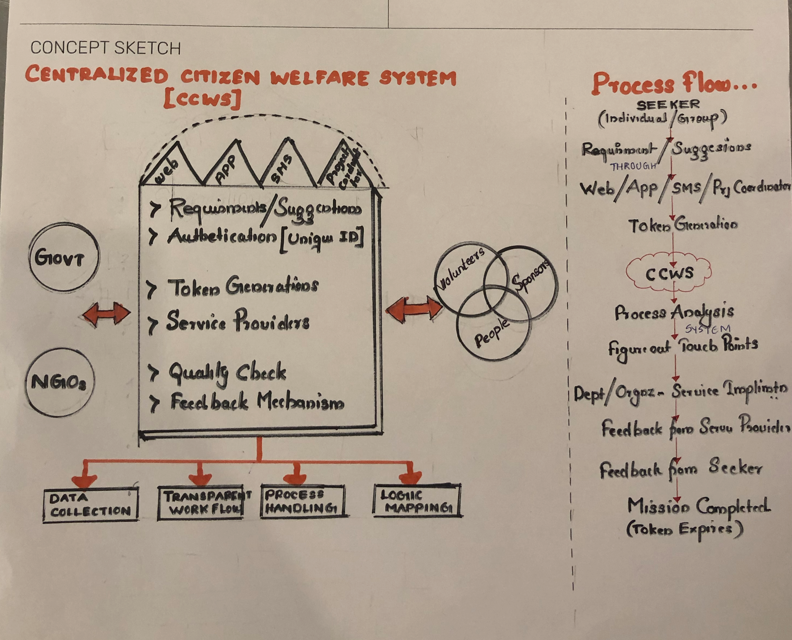 CONCEPT SKETCH
CENTRALIZED CITIZEN WELFARE SYSTEM
[CCWS]
Web
APP
SMS
Project
> Requirments/Suggestions
> Authetication [Unique ID]
> Token Generations
> Service Providers
> Quality Check
> Feedback Mechanism
GOVT
NGOs
Volunteers
Sponsors
People
DATA
COLLECTION
TRANSPARENT
WORK FLOW
PROCESS
HANDLING
LOGIC
MAPPING
Process flow...
SEEKER
(Individual/Group)
Requirment/Suggesions
THROUGH
Web/App/SMS/Prj Coordinator
Token Generation
CCWS
Process Analysis
SYSTEM
figure out Touch Points
Dept/Orgzn- Service
Feedback from Servu Provider
Feedback from Seeker
Mission Completed
(Token Expires)